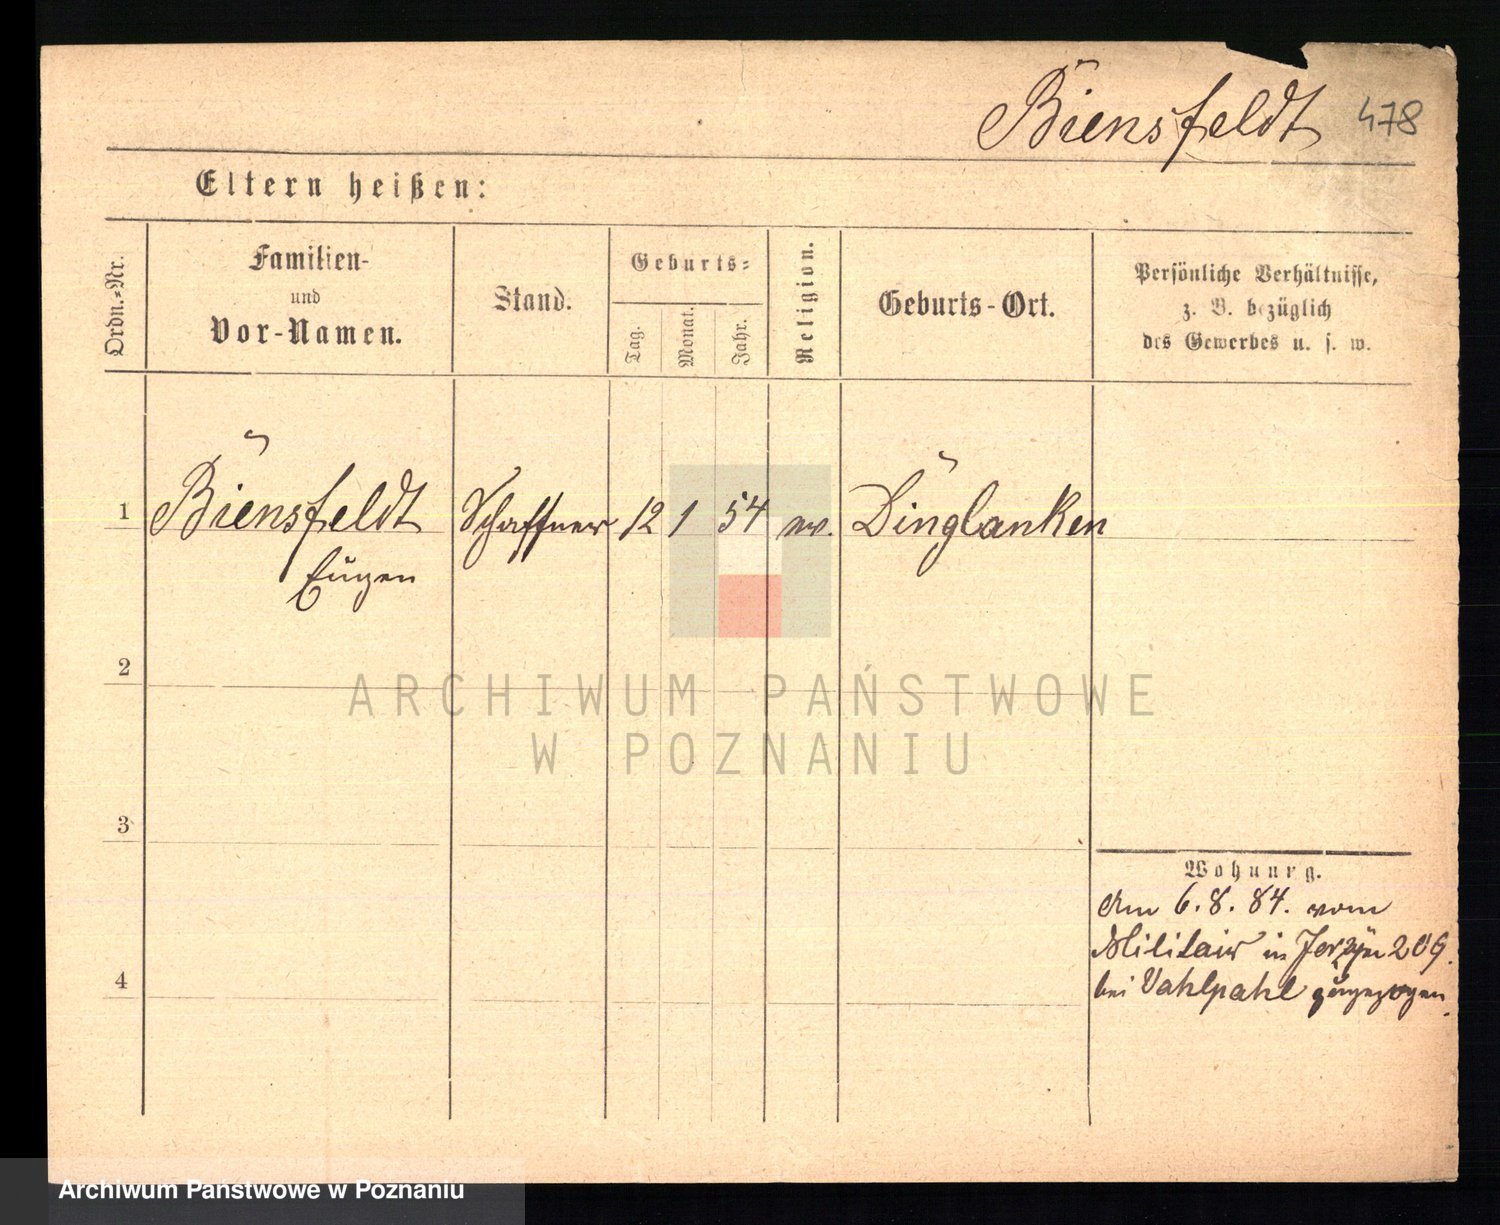 Biensfeldt 478
Eltern heißen:
Ordn.-Nr.
Familien-
und
Vor-Namen.
Stand.
Geburts-
Tag.
Monat.
Jahr.
Religion.
Geburts-Ort.
Persönliche Verhältnisse,
z. B. bezüglich
des Gewerbes u. s. w.
1 Biensfeldt Schaffner 12 1 54 ev. Dinglanken
Eugen
2
3
4
Wohnung.
Am 6.8.84. vom
Militair in 209.
bei Vahlpahl zugezogen.
ARCHIWUM PAŃSTWOWE
W POZNANIU
Archiwum Państwowe w Poznaniu